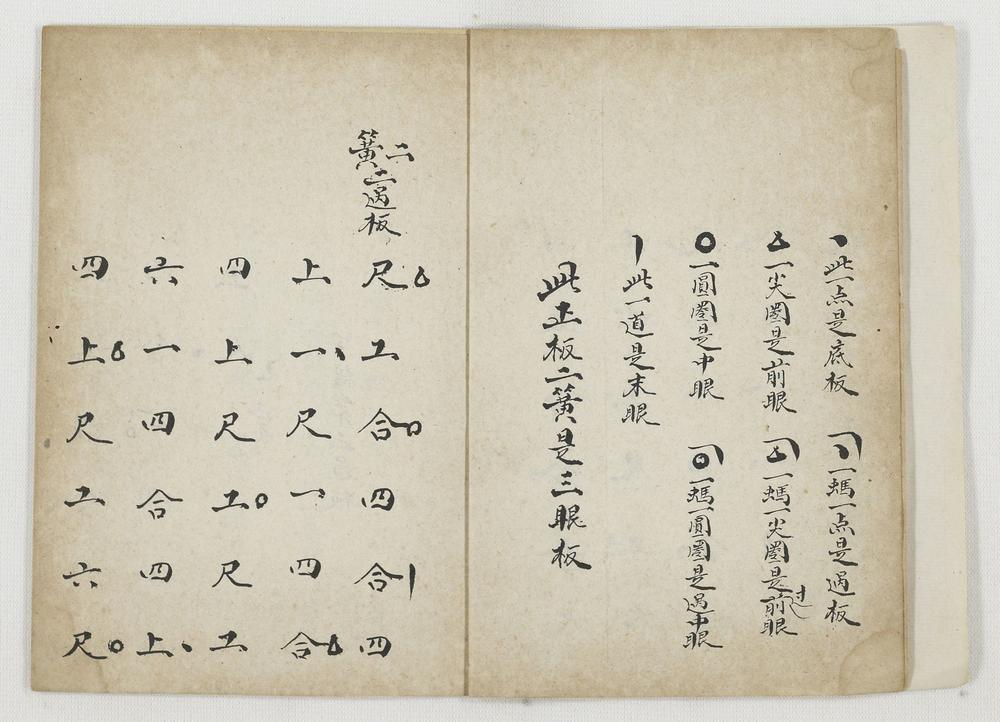 、此一点是底板
一螞一点是過板
△一尖圏是前眼
一螞一尖圏是前眼
过
○一圓圏是中眼
一螞一圓圏是過中眼
丨此一道是末眼
此正板二簧是三眼板
二
簧 過板
尺 工 合 四 合 四
上 一 尺 一 四 合
四 上 尺 工 尺 工
六 一 四 合 四 上
四 上 尺 工 六 尺